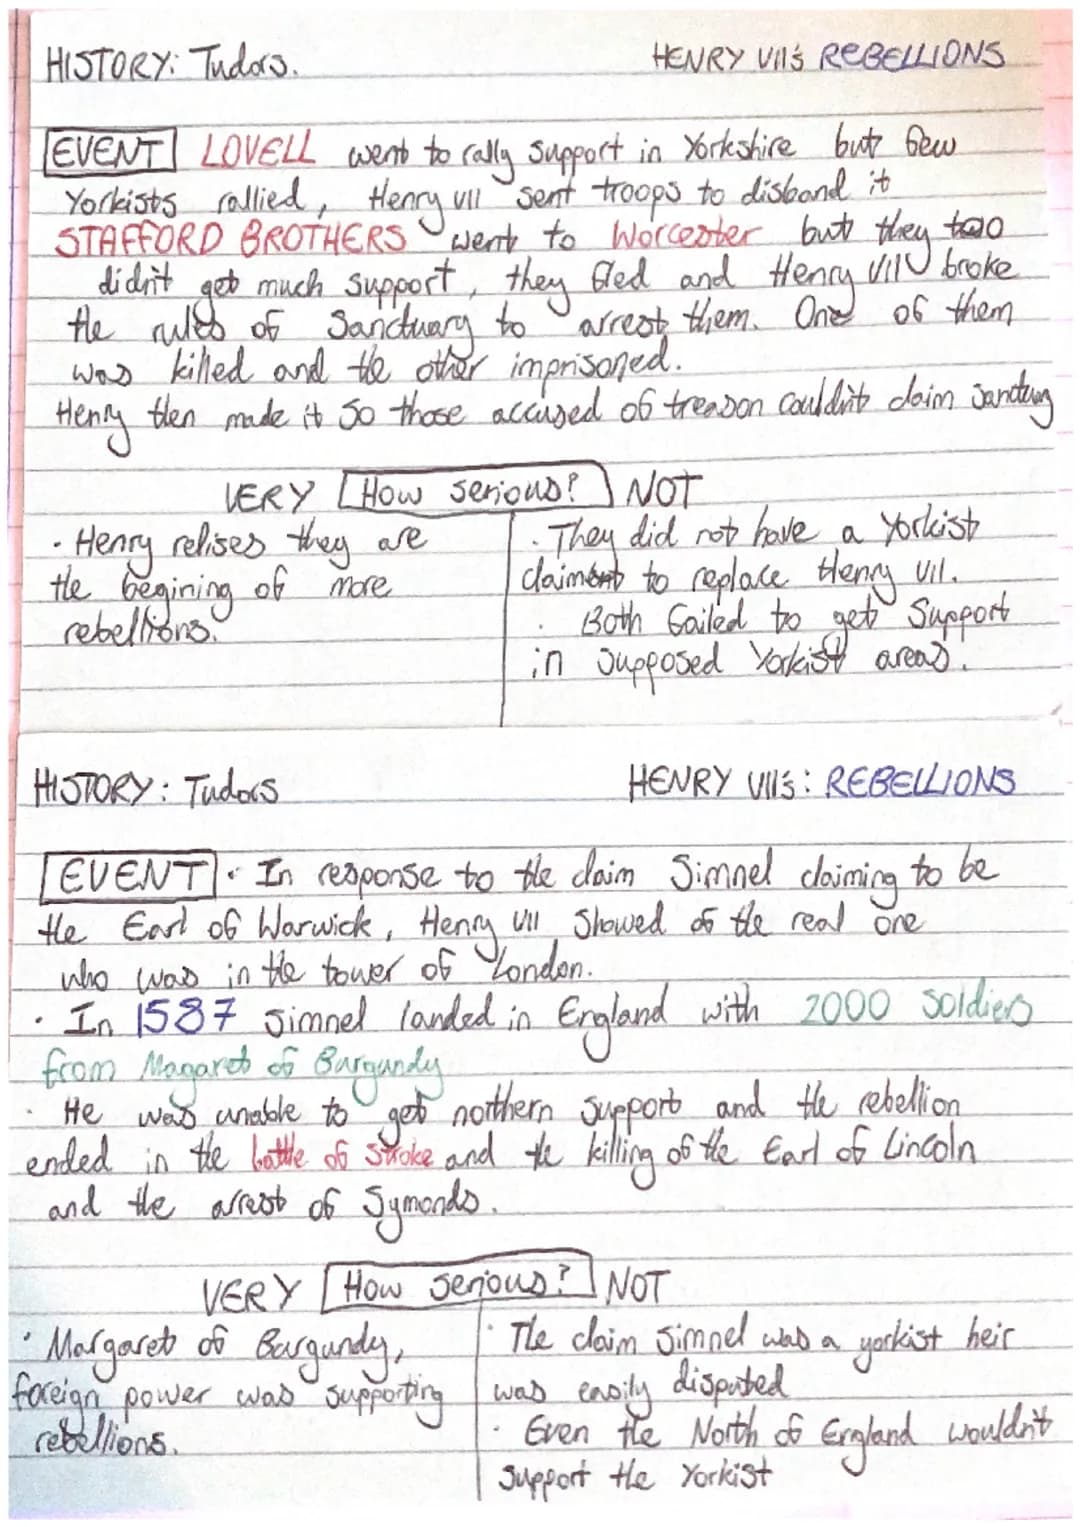 HISTORY: Tudors.
HENRY VII's REBELLIONS
EVENT LOVELL went to rally support in Yorkshire but few
Yorkists rallied, Henry VII sent troops to disband it
STAFFORD BROTHERS went to Worcester but they too
didn't get much support, they fled and Henry VII broke
the rules of Sanctuary to arrest them. One of them
was killed and the other imprisoned.
Henry then made it so those accused of treason couldn't claim Sanctury
VERY How serious? NOT
· Henry relises they are
the begining of more
rebellions.
· They did not have a Yorkist
claiment to replace Henry VII.
· Both failed to get support
in supposed Yorkist areas.
HISTORY: Tudors
HENRY VII's: REBELLIONS
EVENT · In response to the claim Simnel claiming to be
the Earl of Warwick, Henry VII showed of the real one
who was in the tower of London.
· In 1587 simnel landed in England with 2000 soldiers
from Magaret of Burgundy
· He was unable to get northern support and the rebellion
ended in the battle of stroke and the killing of the Earl of Lincoln
and the arrest of Symonds.
VERY How serious? NOT
· Margaret of Burgundy,
foreign power was supporting
rebellions.
· The claim simnel was a yorkist heir
was easily disputed
· Even the North of England wouldn't
support the Yorkist